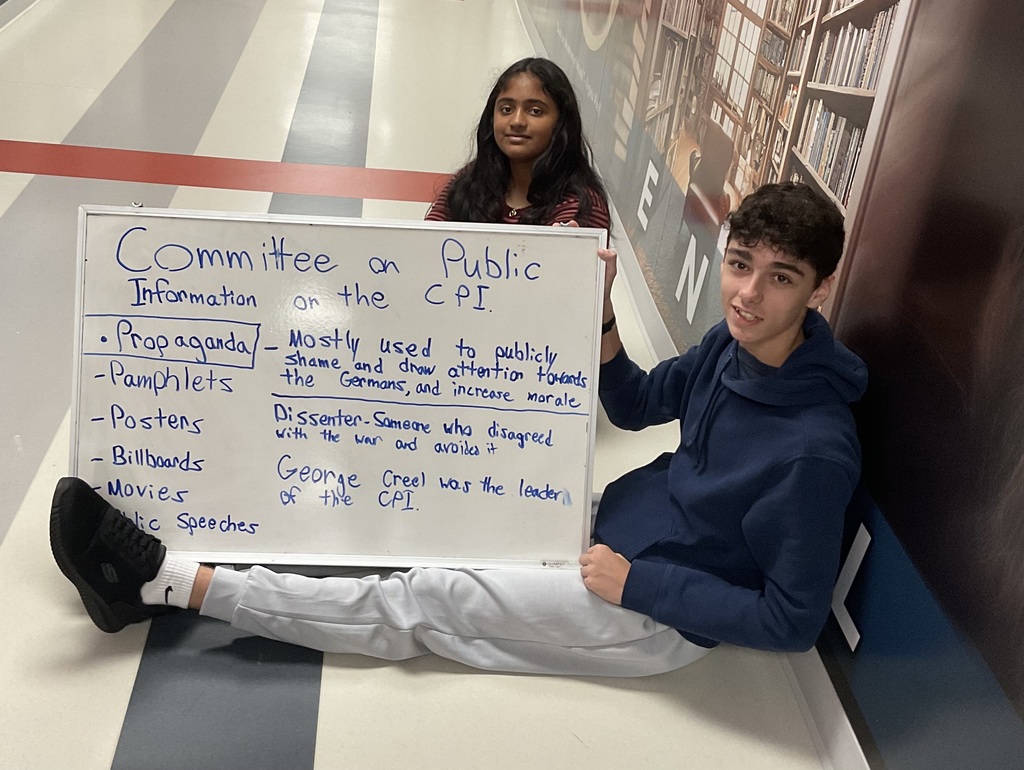 Committee on Public
Information or the CPI.
• Propaganda
- Pamphlets
- Posters
- Billboards
- Movies
Speeches
- Mostly used to publicly
shame and draw attention towards
the Germans, and increase morale
Dissenter - Someone who disagreed
with the war and avoides it
George Creel was the leader
of the CPI.
E
N